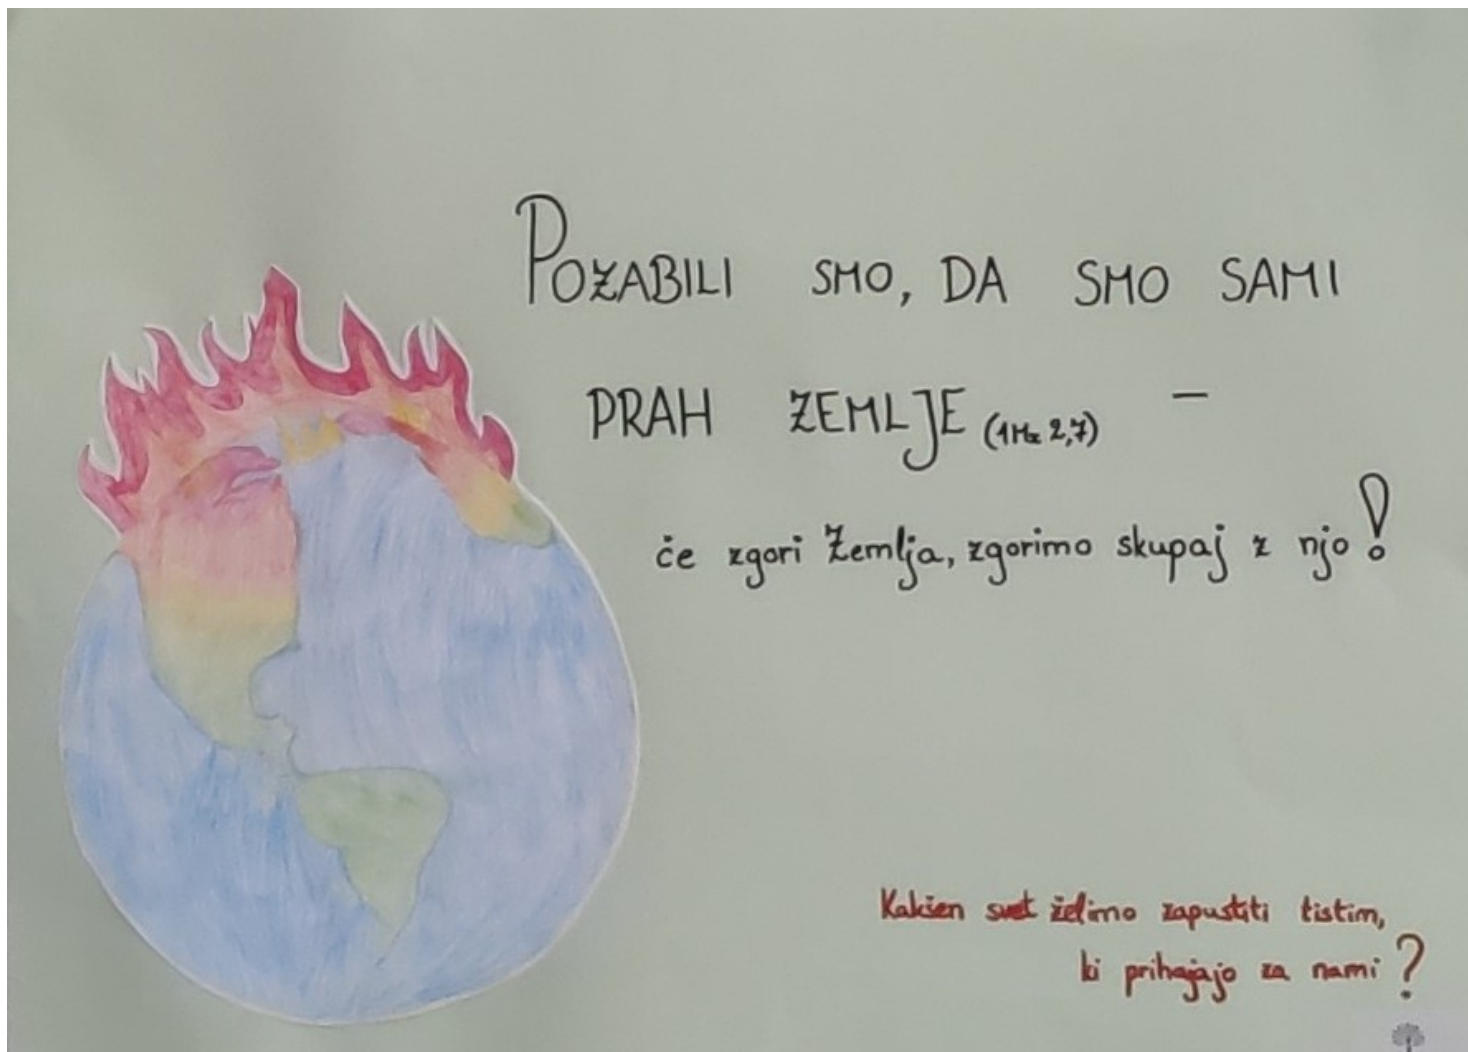 POZABILI SMO, DA SMO SAMI
PRAH ZEMLJE (1Mz 2,7) –
če zgori Zemlja, zgorimo skupaj z njo!
Kakšen svet želimo zapustiti tistim,
ki prihajajo za nami?